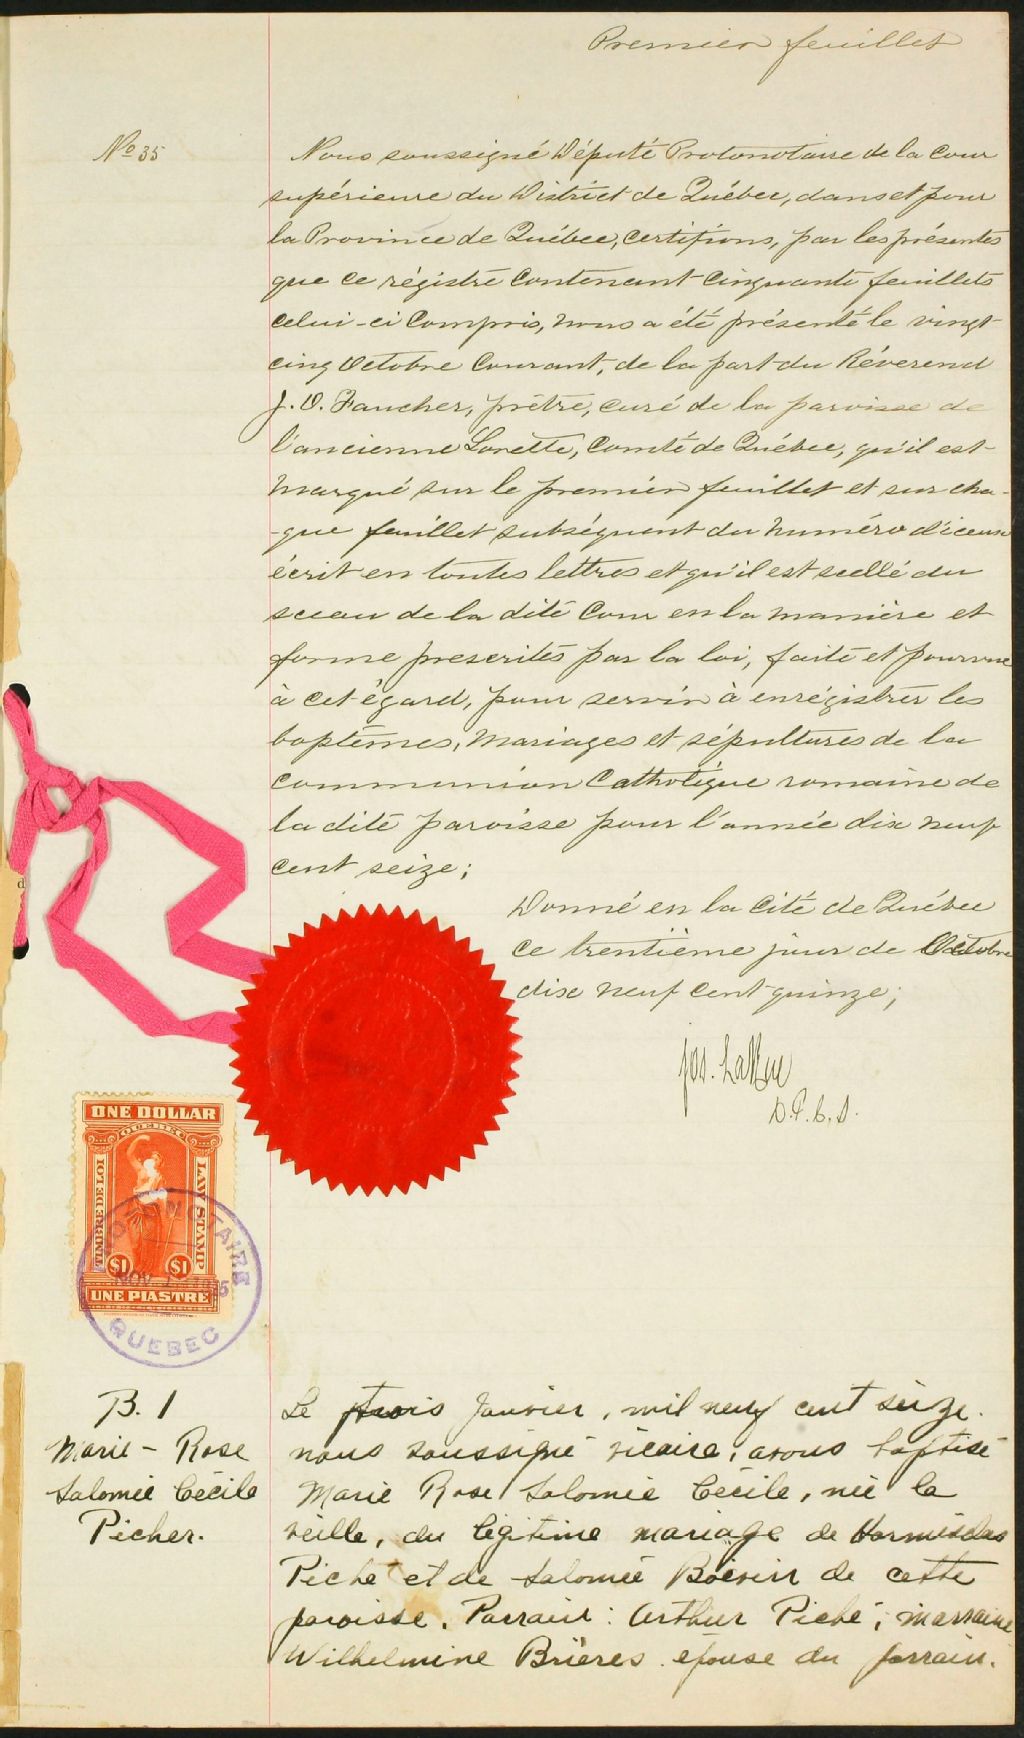 Premier feuillet
No 35
Nous soussigné Député Protonotaire de la Cour
supérieure du District de Québec, dans et pour
la Province de Québec, certifions, par les présentes
que ce régistre contenant cinquante feuillets
celui-ci compris, nous a été présenté le vingt
cinq Octobre courant, de la part du Réverend
J. O. Faucher, prêtre, curé de la paroisse de
l'ancienne Lorette, Comté de Québec, qu'il est
marqué sur le premier feuillet et sur cha-
-que feuillet subséquent du numéro d'iceux
écrit en toutes lettres et qu'il est scellé du
sceau de la dite Cour en la manière et
forme prescrites par la loi, faite et pourvue
à cet égard, pour servir à enrégistrer les
baptêmes, mariages et sépultures de la
communion Catholique romaine de
la dite paroisse pour l'année dix neuf
cent seize;
Donné en la Cité de Québec
ce trentième jour de Octobre
dix neuf cent quinze;
Jos. LaRue
D.P.C.S.
ONE DOLLAR
QUEBEC
TIMBRE DE LOI
LAW STAMP
$1 $1
UNE PIASTRE
PROTONOTAIRE
NOV 1915
QUEBEC
B. 1
Marie - Rose
Salomée Cécile
Picher.
Le trois Janvier, mil neuf cent seize.
nous soussigné vicaire, avons baptisé
Marie Rose Salomée Cécile, née la
veille, du légitime mariage de Hormisdas
Piché et de Salomée Boivin de cette
paroisse. Parrain: Arthur Piché; marraine
Wilhelmine Brières épouse du parrain.